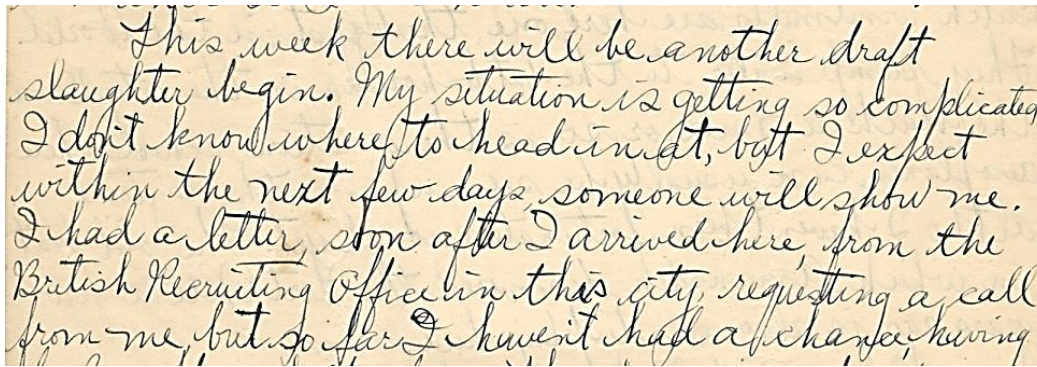 This week there will be another draft
slaughter begin. My situation is getting so complicated
I don't know where to head in at, but I expect
within the next few days, someone will show me.
I had a letter, soon after I arrived here, from the
British Recruiting Office in this city, requesting a call
from me, but so far I haven't had a chance, having